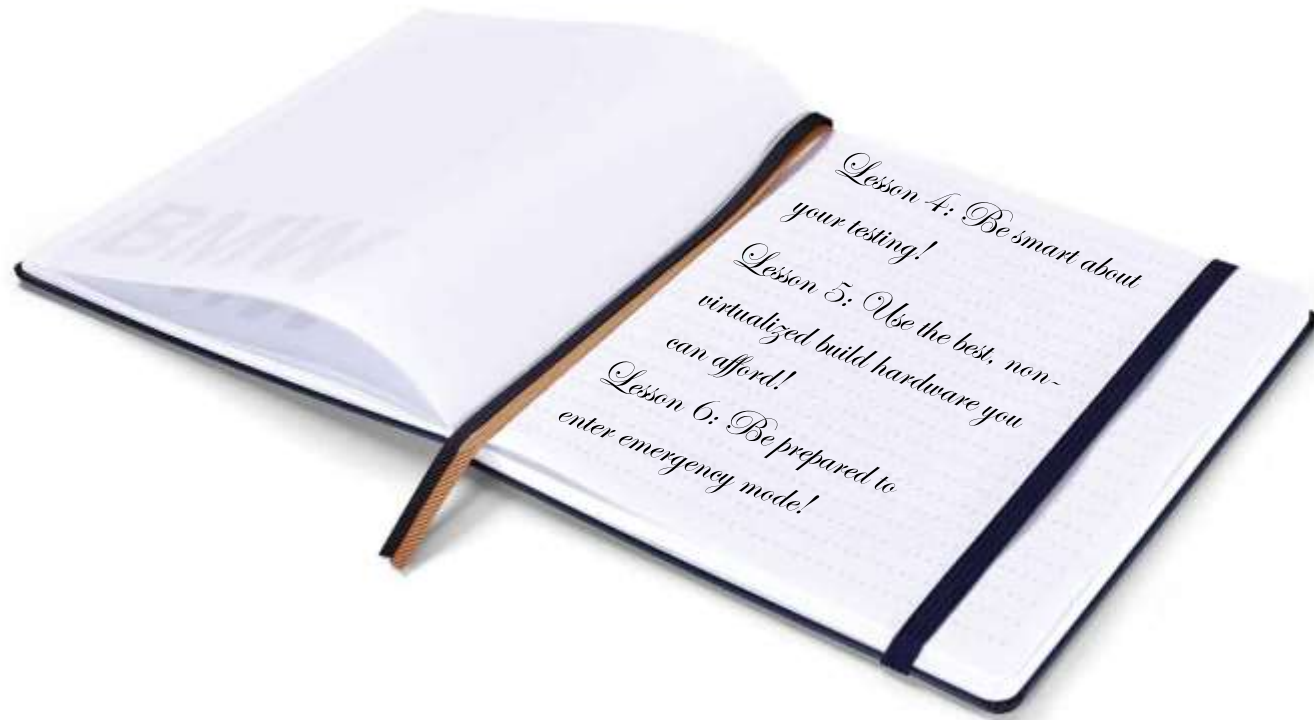 Lesson 4: Be smart about
your testing!
Lesson 5: Use the best, non-
virtualized build hardware you
can afford!
Lesson 6: Be prepared to
enter emergency mode!